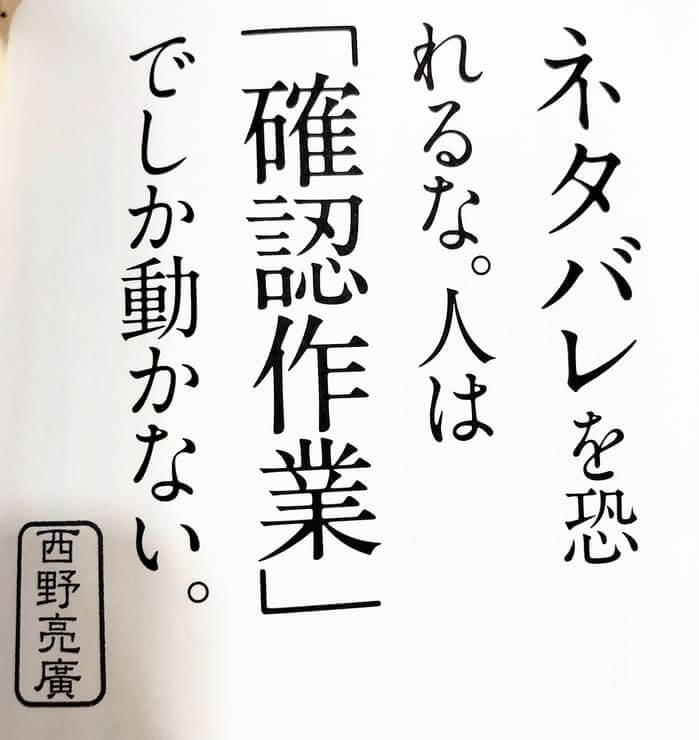 ネタバレを恐
れるな。人は
「確認作業」
でしか動かない。
西野亮廣